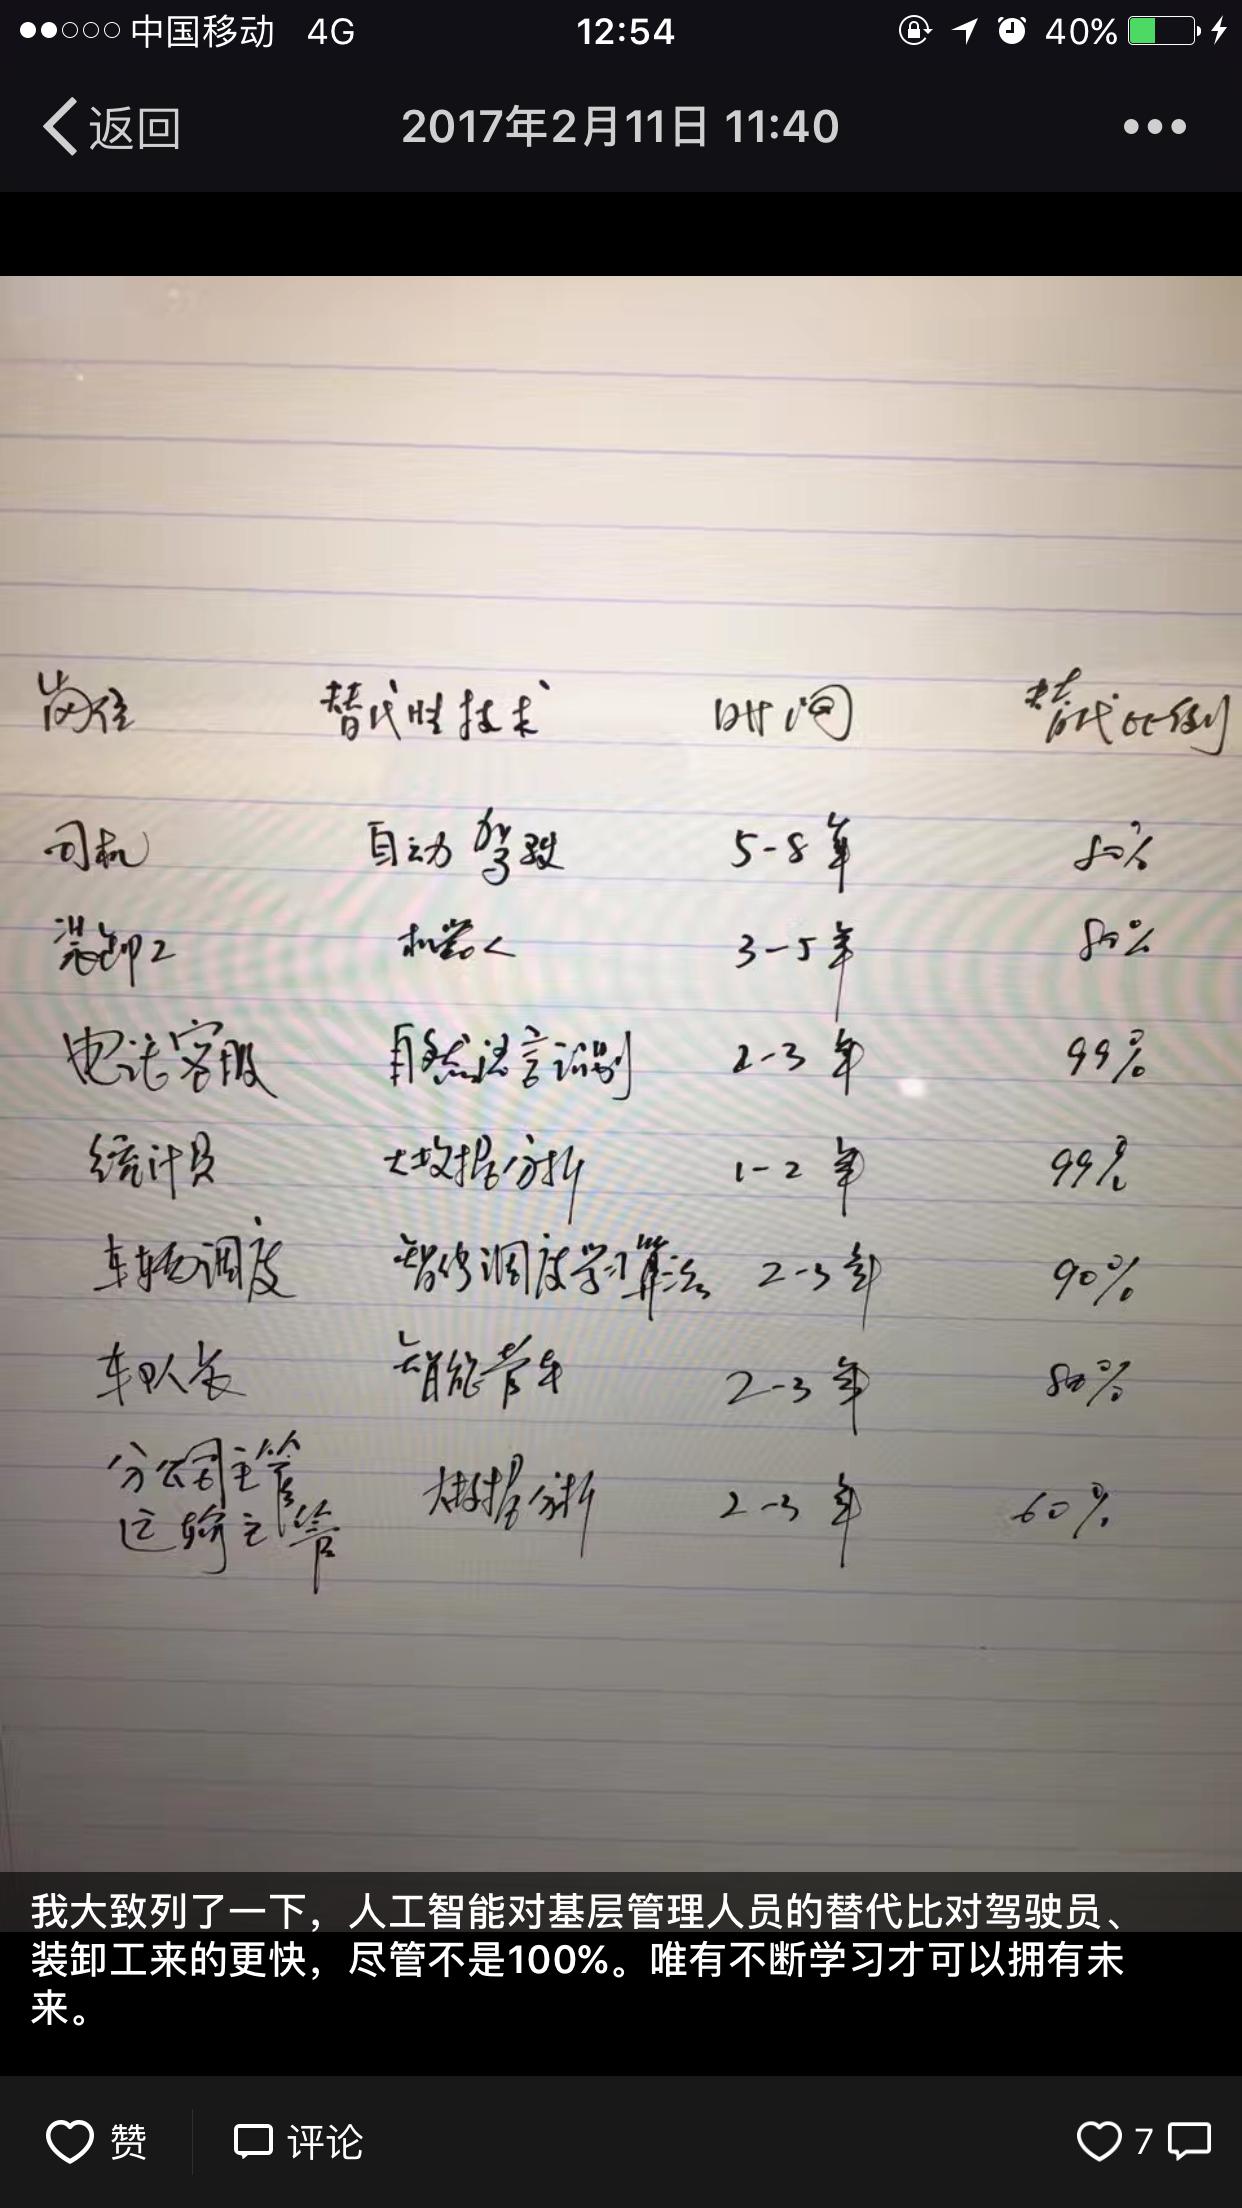 中国移动 4G 12:54 40%
返回 2017年2月11日 11:40
岗位 替代性技术 时间 替代比例
司机 自动驾驶 5-8年 80%
装卸工 机器人 3-5年 80%
电话客服 自然语言识别 2-3年 99%
统计员 大数据分析 1-2年 99%
车辆调度 智能调度学习算法 2-3年 90%
车队长 智能管车 2-3年 80%
分公司主管
运输主管 大数据分析 2-3年 60%
我大致列了一下，人工智能对基层管理人员的替代比对驾驶员、
装卸工来的更快，尽管不是100%。唯有不断学习才可以拥有未
来。
赞 评论 7